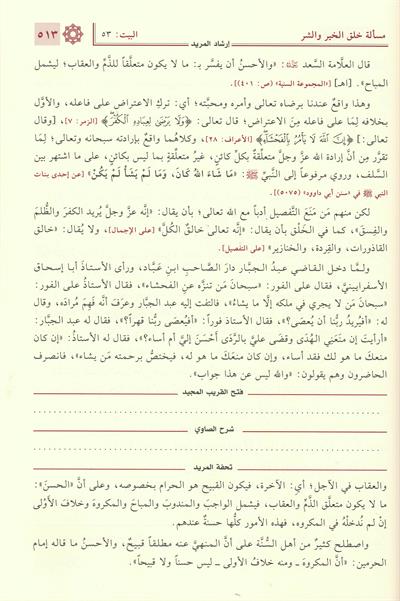 مسألة خلق الخير والشر
البيت: ٥٣
٥١٣
إرشاد المريد
قال العلَّامة السَّعد: «والأحسنُ أن يفسَّر بـ: ما لا يكون متعلَّقاً للذَّمِّ والعقاب؛ ليشمل
المباح». [اهـ] [«المجموعة السنية» (ص: ٤٠١)].
وهذا واقعٌ عندنا برضاه تعالى وأمره ومحبَّته؛ أي: تركِ الاعتراض على فاعله، والأوَّل
بخلافه لِمَا على فاعله مِنَ الاعتراض؛ قال تعالى: ﴿وَلَا يَرْضَىٰ لِعِبَادِهِ الْكُفْرَ﴾ [الزمر: ٧]، [وقال
تعالى:] ﴿إِنَّ اللَّهَ لَا يَأْمُرُ بِالْفَحْشَاءِ﴾ [الأعراف: ٢٨]، وكلاهُما واقعٌ بإرادته سبحانه وتعالى؛ لِما
تقرَّر مِن أنَّ إرادةَ الله عزَّ وجلَّ متعلَّقةٌ بكلِّ كائنٍ، غيرُ متعلِّقةٍ بما ليس بكائنٍ، على ما اشتهر بين
السَّلف، ورُوي مرفوعاً إلى النَّبيِّ ﷺ: «مَا شَاءَ اللهُ كَانَ، وَمَا لَمْ يَشَأْ لَمْ يَكُنْ» [عن إحدى بنات
النبي ﷺ في «سنن أبي داوود» (٥٠٧٥)].
لكن منهم مَن مَنَعَ التَّفصيل أدباً مع الله تعالى؛ بأن يقال: «إنَّه عزَّ وجلَّ يُريد الكفرَ والظُّلمَ
والفِسقَ»، كما في الخَلْقِ بأن يقال: «إنَّه تعالى خالقُ الكُلِّ» [على الإجمال]، ولا يُقال: «خالق
القاذورات، والقِردة، والخنازير» [على التفصيل].
ولـمَّا دخل القاضي عبدُ الجبَّار دارَ الصَّاحبِ ابنِ عبَّاد، ورأى الأستاذَ أبا إسحاق
الأسفرايينيَّ، فقال على الفور: «سبحانَ مَن تنزَّه عن الفحشاء»، فقال الأستاذُ على الفور:
«سبحانَ مَن لا يجري في ملكه إلَّا ما يشاءُ»، فالتفت إليه عبد الجبَّار وعرَفَ أنَّه فَهِمَ مُرادَه، وقال
له: «أفيُريدُ ربُّنا أن يُعصَى؟»، فقال الأستاذ فوراً: «أفيُعصَى ربُّنا قهراً؟»، فقال له عبد الجبَّار:
«أرأيتَ إن منَعَني الهُدَى وقضى عليَّ بالرَّدَى أَحْسَنَ إليَّ أم أساء؟»، فقال له الأستاذُ: «إن كان
منعكَ ما هو لك فقد أساء، وإن كان منعَكَ ما هو له، فيختصُّ برحمته مَن يشاء»، فانصرف
الحاضرون وهم يقولون: «والله ليس عن هذا جواب».
فتح القريب المجيد
شرح الصاوي
تحفة المريد
والعقاب في الآجل؛ أي: الآخرة، فيكون القبيح هو الحرام بخصوصه، وعلى أنَّ «الحسنَ»:
ما لا يكون متعلَّق الذَّمِّ والعقاب، فيشمل الواجبَ والمندوبَ والمباحَ والمكروهَ وخلافَ الأَوْلى
إنْ لم نُدخلْهُ في المكروه، فهذه الأمور كلُّها حسنةٌ عندهم.
واصطلح كثيرٌ من أهل السُّنَّة على أنَّ المنهيَّ عنه مطلقاً قبيحٌ، والأحسنُ ما قاله إمام
الحرمين: «أنَّ المكروهَ - ومنه خلافُ الأولى - ليس حسناً ولا قبيحاً».